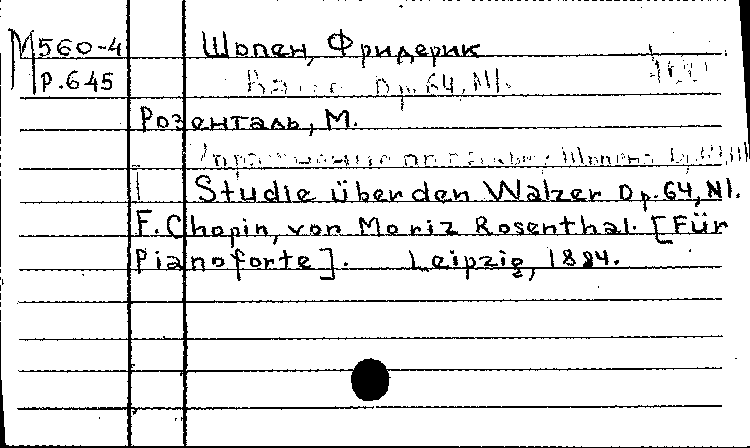 М560-4 Шопен, Фридерик
Р.645 Op. 64, N1.
Розенталь, М.
Studie über den Walzer Op. 64, N1.
F. Chopin, von Moriz Rosenthal. [Für
Pianoforte]. Leipzig, 1884.